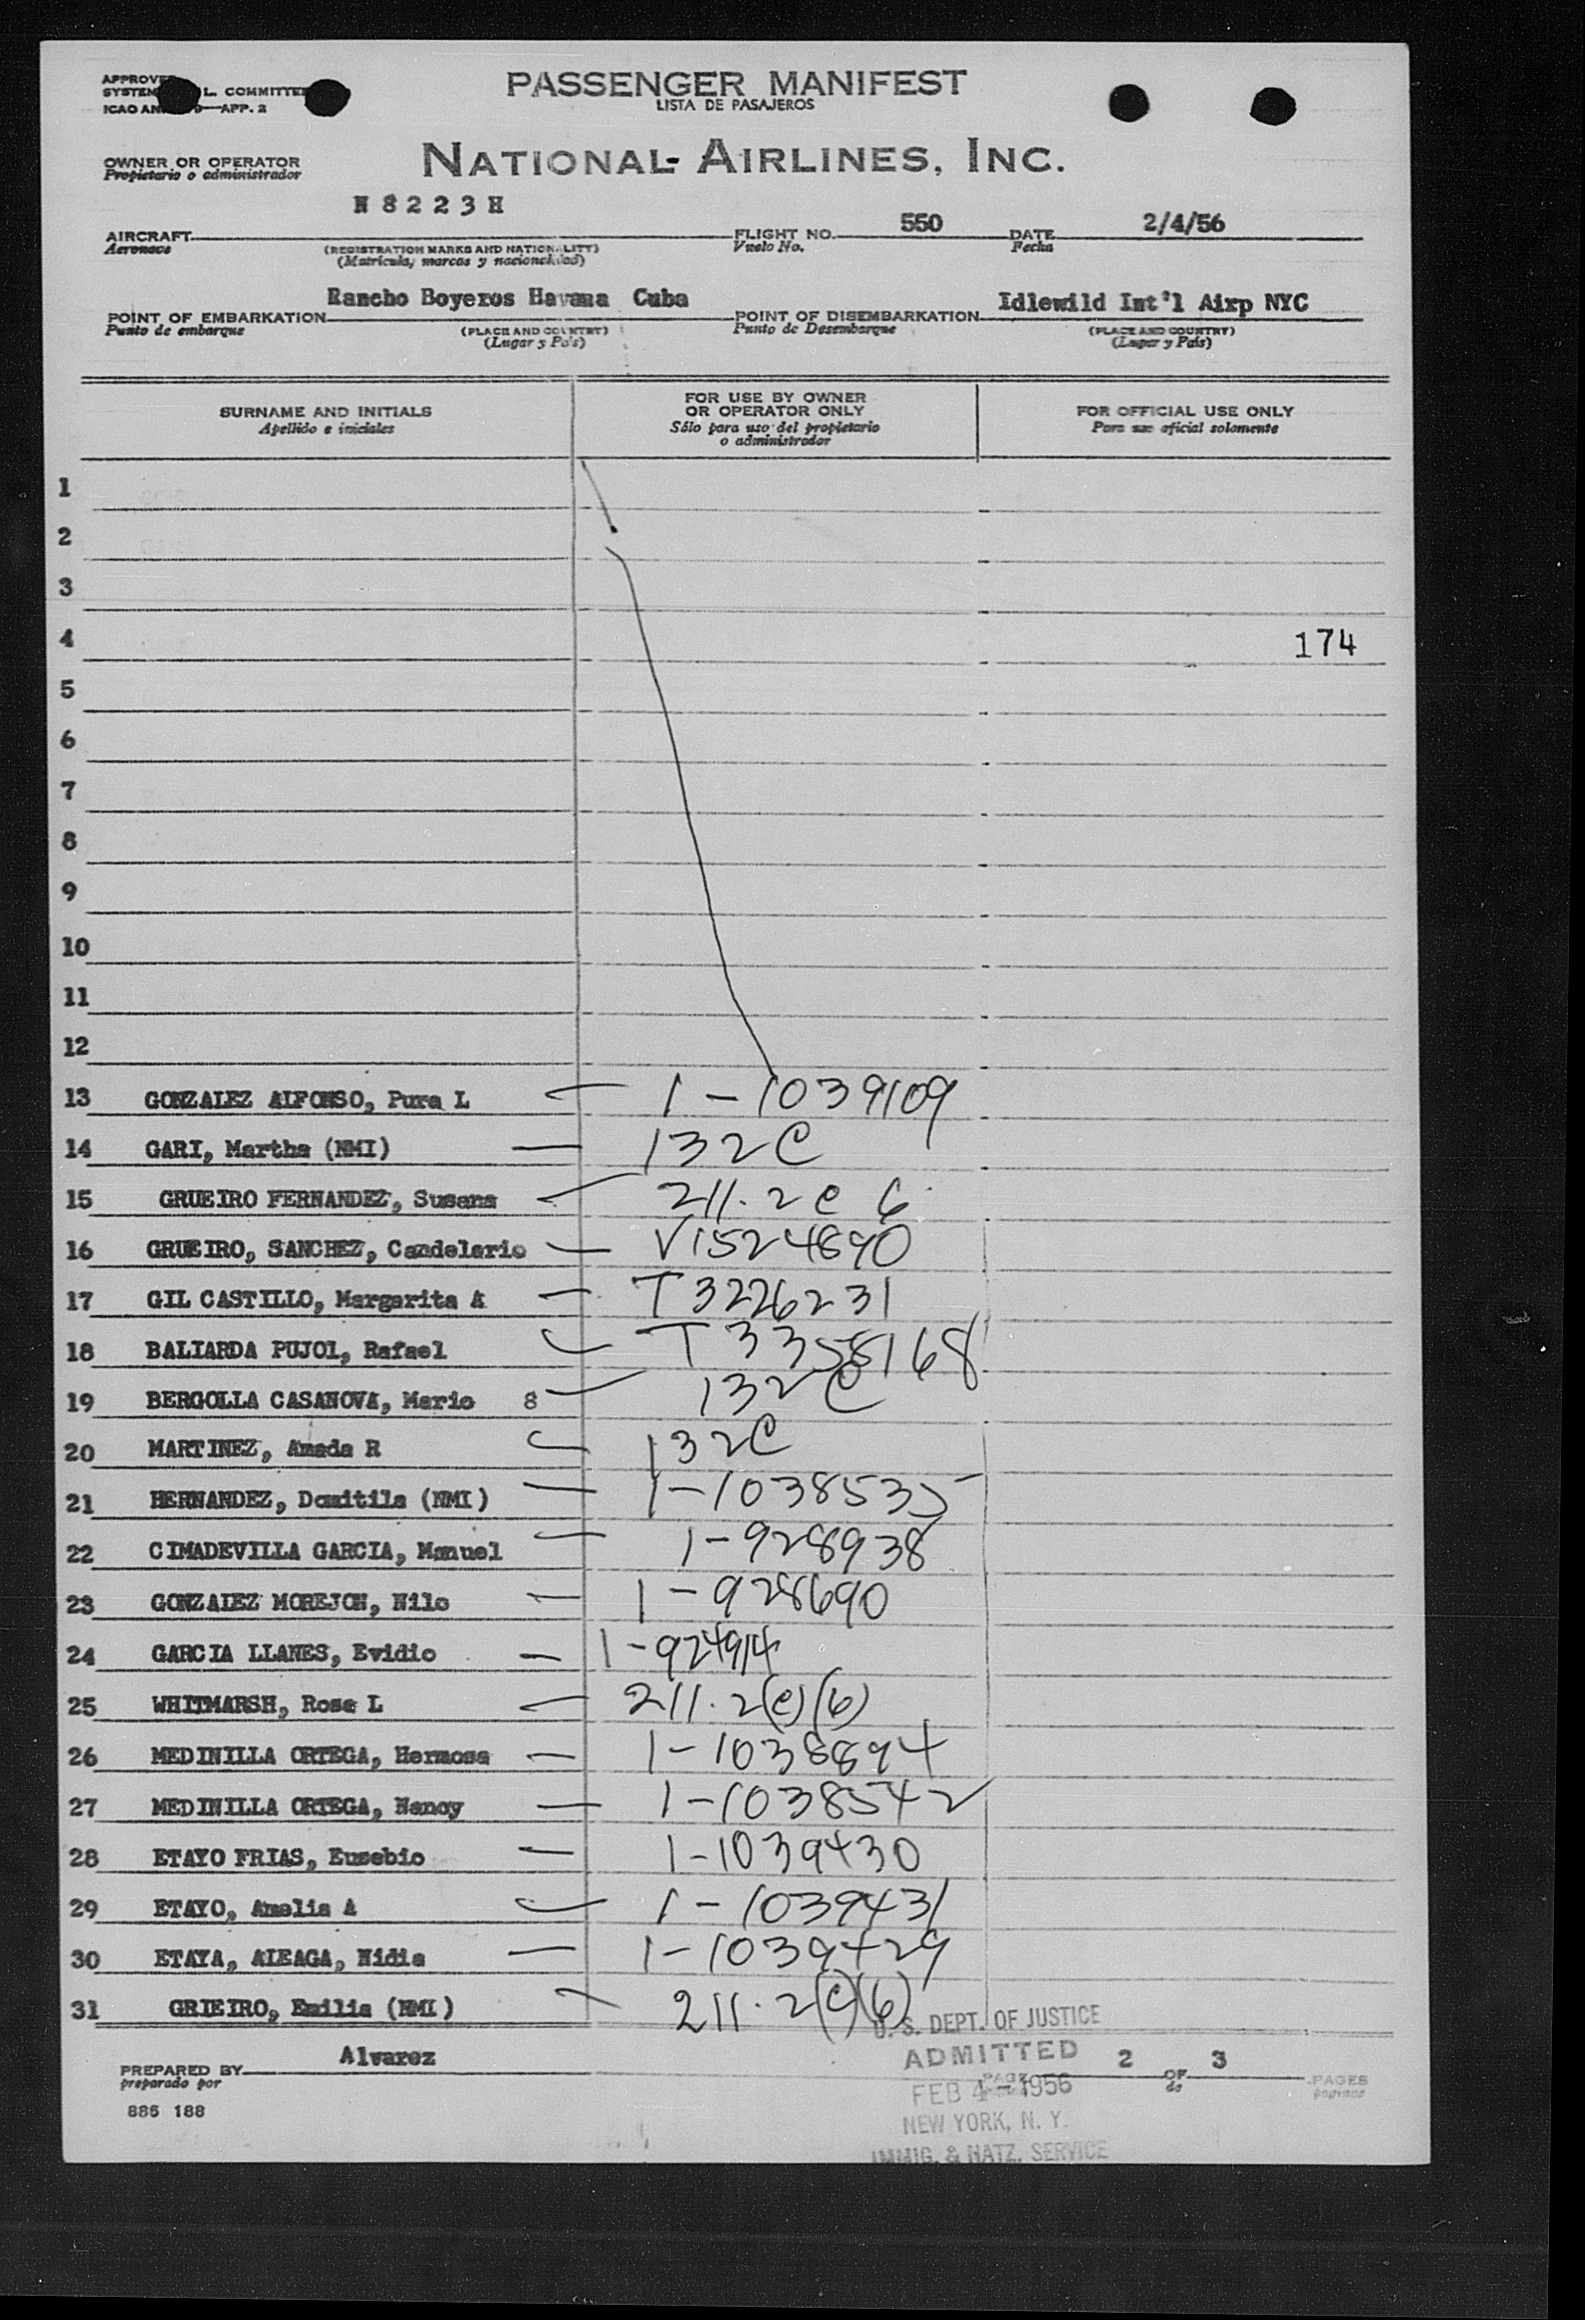 PASSENGER MANIFEST
LISTA DE PASAJEROS
L. COMMITTEE
APP. 2
OWNER OR OPERATOR
Propietario o administrador
NATIONAL AIRLINES, INC.
N 8 2 2 3 H
AIRCRAFT
Aeronave
(REGISTRATION MARKS AND NATIONALITY)
(Matricula, marcas y nacionalidad)
FLIGHT NO. 550
Vuelo No.
DATE 2/4/56
Fecha
POINT OF EMBARKATION Rancho Boyeros Havana Cuba
Punto de embarque
(PLACE AND COUNTRY)
(Lugar y País)
POINT OF DISEMBARKATION Idlewild Int'l Airp NYC
Punto de Desembarque
(PLACE AND COUNTRY)
(Lugar y País)
SURNAME AND INITIALS
Apellido e iniciales
FOR USE BY OWNER
OR OPERATOR ONLY
Sólo para uso del propietario
o administrador
FOR OFFICIAL USE ONLY
Para uso oficial solamente
1
2
3
4 174
5
6
7
8
9
10
11
12
13 GONZALEZ ALFONSO, Pura L 1-1039109
14 GARI, Martha (NMI) 132C
15 GRUEIRO FERNANDEZ, Susana 211.2 c 6
16 GRUEIRO, SANCHEZ, Candelario V1524890
17 GIL CASTILLO, Margarita A T 3226231
18 BALIARDA PUJOL, Rafael T 3358168
19 BERGOLLA CASANOVA, Mario 8 132 C
20 MARTINEZ, Amada R 132C
21 HERNANDEZ, Domitila (NMI) 1-1038535
22 CIMADEVILLA GARCIA, Manuel 1-928938
23 GONZALEZ MOREJON, Nilo 1-928690
24 GARCIA LLANES, Evidio 1-924914
25 WHITMARSH, Rosa L 211.2(c)(6)
26 MEDINILLA ORTEGA, Hermosa 1-1038894
27 MEDINILLA ORTEGA, Nancy 1-1038542
28 ETAYO FRIAS, Eusebio 1-1039430
29 ETAYO, Amelia A 1-1039431
30 ETAYA, ALEAGA, Nidia 1-1039429
31 GRIEIRO, Emilia (NMI) 211.2(c)(6)
U. S. DEPT. OF JUSTICE
ADMITTED
FEB 4 - 1956
NEW YORK, N. Y.
IMMIG. & NATZ. SERVICE
PREPARED BY Alvarez
preparado por
PAGE 2 OF 3 PAGES
de paginas
885 188